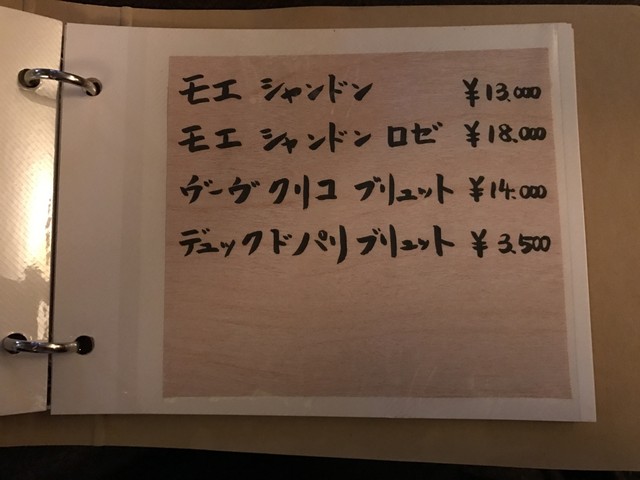 モエ シャンドン ¥13.000
モエ シャンドン ロゼ ¥18.000
ヴーヴ クリコ ブリュット ¥14.000
デュックドパリ ブリュット ¥3.500